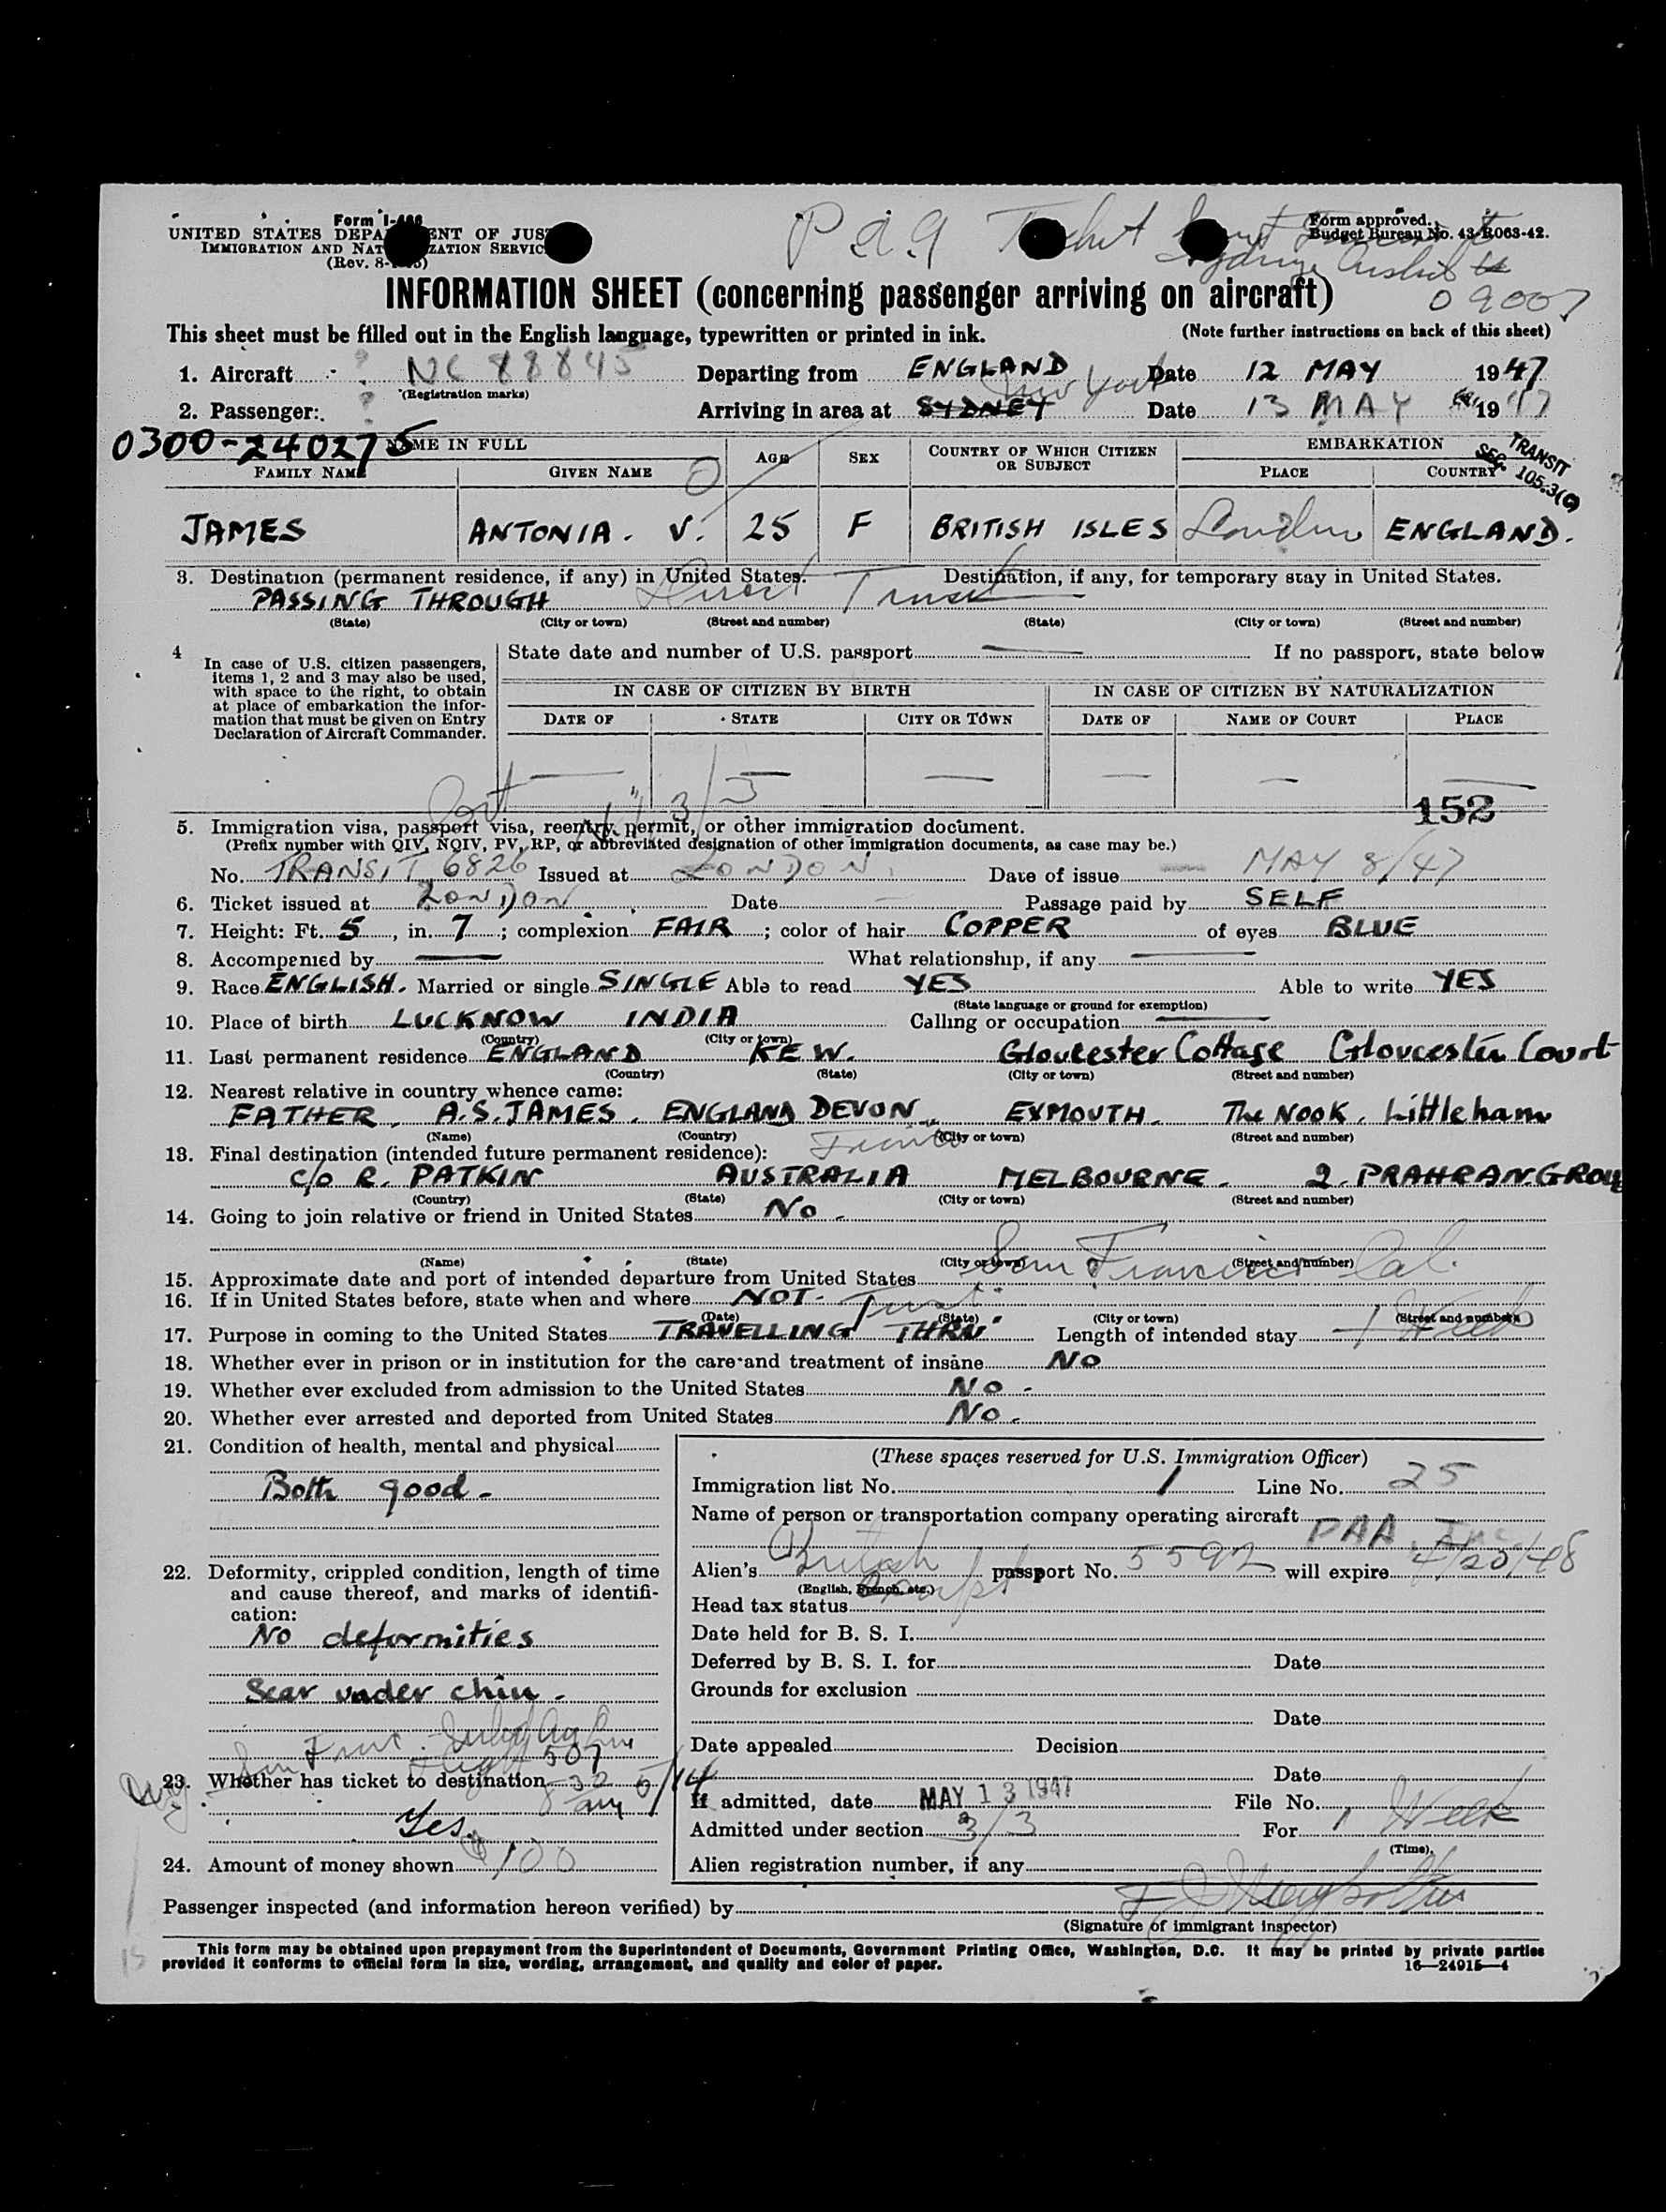 Form I-466
UNITED STATES DEPA ENT OF JUS
IMMIGRATION AND NAT ZATION SERVIC
(Rev. 8-
P.A.A Ticket
Sydney
09007
Form approved.
Budget Bureau No. 43-R063-42.
INFORMATION SHEET (concerning passenger arriving on aircraft)
This sheet must be filled out in the English language, typewritten or printed in ink. (Note further instructions on back of this sheet)
1. Aircraft NC 88845 Departing from ENGLAND Date 12 MAY 1947
(Registration marks)
New York
2. Passenger: Arriving in area at SYDNEY Date 13 MAY 1947
0300-240275
NAME IN FULL AGE SEX COUNTRY OF WHICH CITIZEN OR SUBJECT EMBARKATION
FAMILY NAME GIVEN NAME PLACE COUNTRY
TRANSIT
SEC. 105.3(c)
JAMES ANTONIA. V. 25 F BRITISH ISLES London ENGLAND.
3. Destination (permanent residence, if any) in United States. Destination, if any, for temporary stay in United States.
PASSING THROUGH Direct Transit
(State) (City or town) (Street and number) (State) (City or town) (Street and number)
4 In case of U.S. citizen passengers, items 1, 2 and 3 may also be used, with space to the right, to obtain at place of embarkation the information that must be given on Entry Declaration of Aircraft Commander.
State date and number of U.S. passport If no passport, state below
IN CASE OF CITIZEN BY BIRTH IN CASE OF CITIZEN BY NATURALIZATION
DATE OF STATE CITY OR TOWN DATE OF NAME OF COURT PLACE
3/3
152
5. Immigration visa, passport visa, reentry permit, or other immigration document.
(Prefix number with QIV, NQIV, PV, RP, or abbreviated designation of other immigration documents, as case may be.)
No. TRANSIT 6826 Issued at LONDON Date of issue MAY 8/47
6. Ticket issued at LONDON Date Passage paid by SELF
7. Height: Ft. 5, in. 7; complexion FAIR; color of hair COPPER of eyes BLUE
8. Accompanied by What relationship, if any
9. Race ENGLISH. Married or single SINGLE Able to read YES Able to write YES
(State language or ground for exemption)
10. Place of birth LUCKNOW INDIA Calling or occupation
(Country) (City or town)
11. Last permanent residence ENGLAND KEW. Gloucester Cottage Gloucester Court
(Country) (State) (City or town) (Street and number)
12. Nearest relative in country whence came:
FATHER. A.S. JAMES. ENGLAND DEVON EXMOUTH. The NOOK, Littleham
(Name) (Country) (City or town) (Street and number)
13. Final destination (intended future permanent residence):
c/o R. PATKIN AUSTRALIA MELBOURNE. 2. PRAHRAN GROVE
(Country) (State) (City or town) (Street and number)
14. Going to join relative or friend in United States No.
(Name) (State) (City or town) (Street and number)
15. Approximate date and port of intended departure from United States San Francisco Cal.
16. If in United States before, state when and where NOT.
(Date) (State) (City or town) (Street and number)
17. Purpose in coming to the United States TRAVELLING THRU Length of intended stay 1 Week
18. Whether ever in prison or in institution for the care and treatment of insane No
19. Whether ever excluded from admission to the United States No.
20. Whether ever arrested and deported from United States No.
21. Condition of health, mental and physical
Both good.
22. Deformity, crippled condition, length of time and cause thereof, and marks of identification:
No deformities
Scar under chin.
San Fran.
Flight 507
23. Whether has ticket to destination
8 32 am 5/14
Yes.
24. Amount of money shown $100
(These spaces reserved for U.S. Immigration Officer)
Immigration list No. 1 Line No. 25
Name of person or transportation company operating aircraft PAA Inc
Alien's British passport No. 5592 will expire 4/20/48
(English, French, etc.)
Head tax status Exempt
Date held for B. S. I.
Deferred by B. S. I. for Date
Grounds for exclusion
Date
Date appealed Decision
Date
If admitted, date MAY 13 1947 File No.
Admitted under section 3/3 For 1 Week
(Time)
Alien registration number, if any
Passenger inspected (and information hereon verified) by
(Signature of immigrant inspector)
This form may be obtained upon prepayment from the Superintendent of Documents, Government Printing Office, Washington, D.C. It may be printed by private parties
provided it conforms to official form in size, wording, arrangement, and quality and color of paper. 16—24915—4